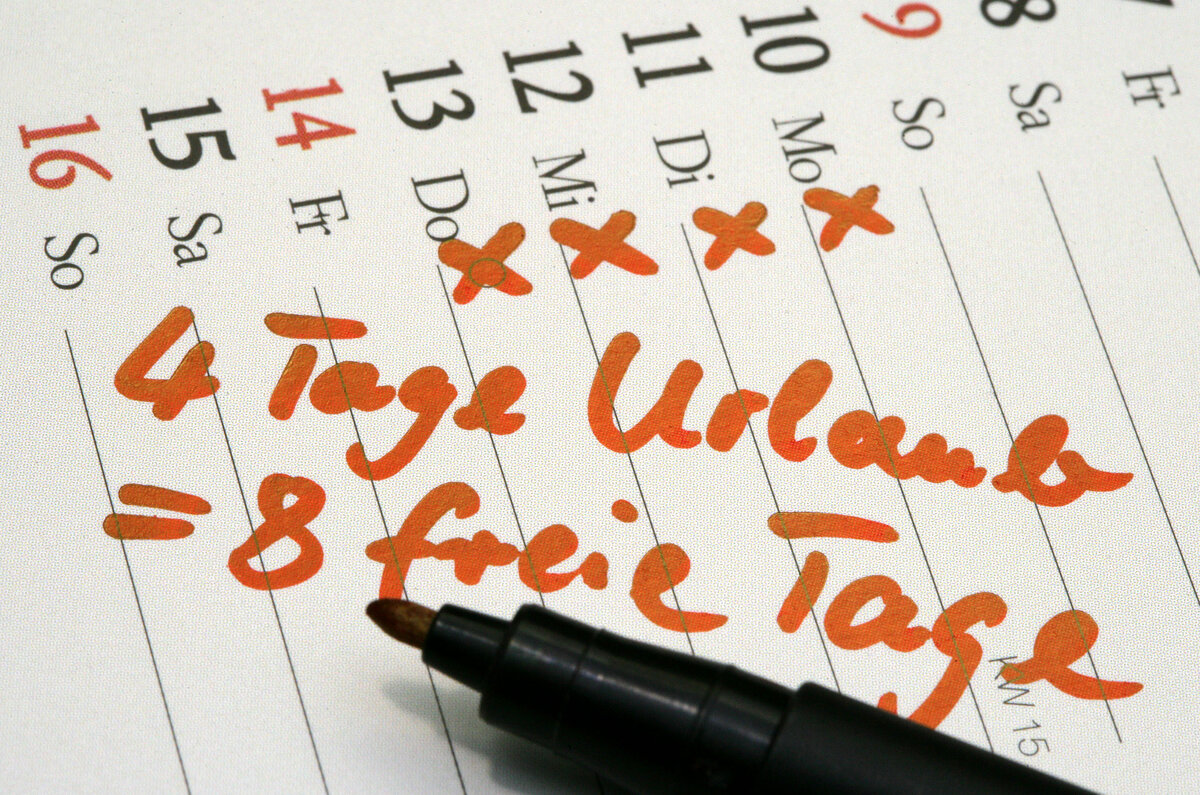 16 15 14 13 12 11 10 9 8
So Sa Fr Do Mi Di Mo So Sa Fr
x x x x
4 Tage Urlaub
= 8 freie Tage
KW 15